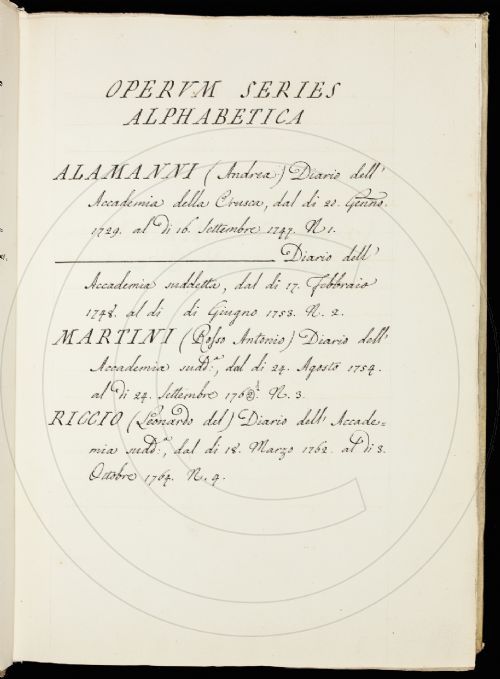 OPERVM SERIES
ALPHABETICA
ALAMANNI (Andrea) Diario dell'
Accademia della Crusca, dal di 20. Genno.
1729. al di 16. Settembre 1747. N 1.
Diario dell'
Accademia suddetta, dal di 17. Febbraio
1748. al di di Giugno 1753. N. 2.
MARTINI (Rosso Antonio) Diario dell'
Accademia sudd.a, dal di 24. Agosto 1754.
al di 24. Settembre N. 3.
RICCIO (Leonardo del) Diario dell' Accade=
mia sudd.a, dal di 18. Marzo 1762. al di 3.
Ottobre 1764. N. 4.